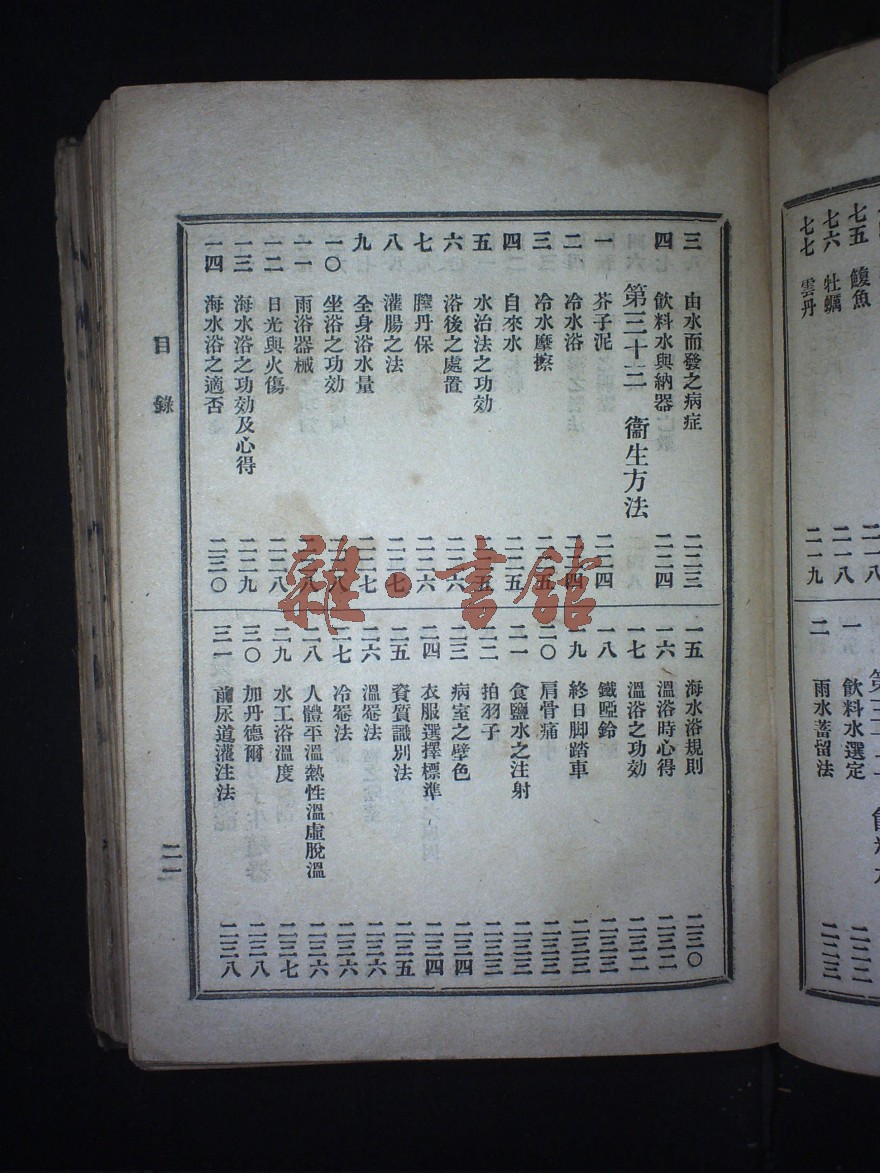 七五 鰒魚 二一八
七六 牡蠣 二一八
七七 雲丹 二一九
一 飲料水選定 二二二
二 雨水蓄留法 二二三
三 由水而發之病症 二二三
四 飲料水與納器 二二四
第三十二 衞生方法
一 芥子泥 二二四
二 冷水浴 二二四
三 冷水摩擦 二二五
四 自來水 二二五
五 水治法之功効 二二五
六 浴後之處置 二二六
七 膣丹保 二二六
八 灌腸之法 二二七
九 全身浴水量 二二七
一〇 坐浴之功効 二二八
一一 雨浴器械 二二八
一二 日光與火傷 二二八
一三 海水浴之功効及心得 二二九
一四 海水浴之適否 二三〇
一五 海水浴規則 二三〇
一六 溫浴時心得 二三二
一七 溫浴之功効 二三二
一八 鐵啞鈴 二三三
一九 終日脚踏車 二三三
二〇 肩骨痛 二三三
二一 食鹽水之注射 二三三
二二 拍羽子 二三三
二三 病室之壁色 二三四
二四 衣服選擇標準 二三四
二五 資質識別法 二三五
二六 溫罨法 二三六
二七 冷罨法 二三六
二八 人體平溫熱性溫虛脫溫 二三六
二九 水工浴溫度 二三七
三〇 加丹德爾 二三八
三一 前尿道灌注法 二三八
目錄
二一
雜·書館